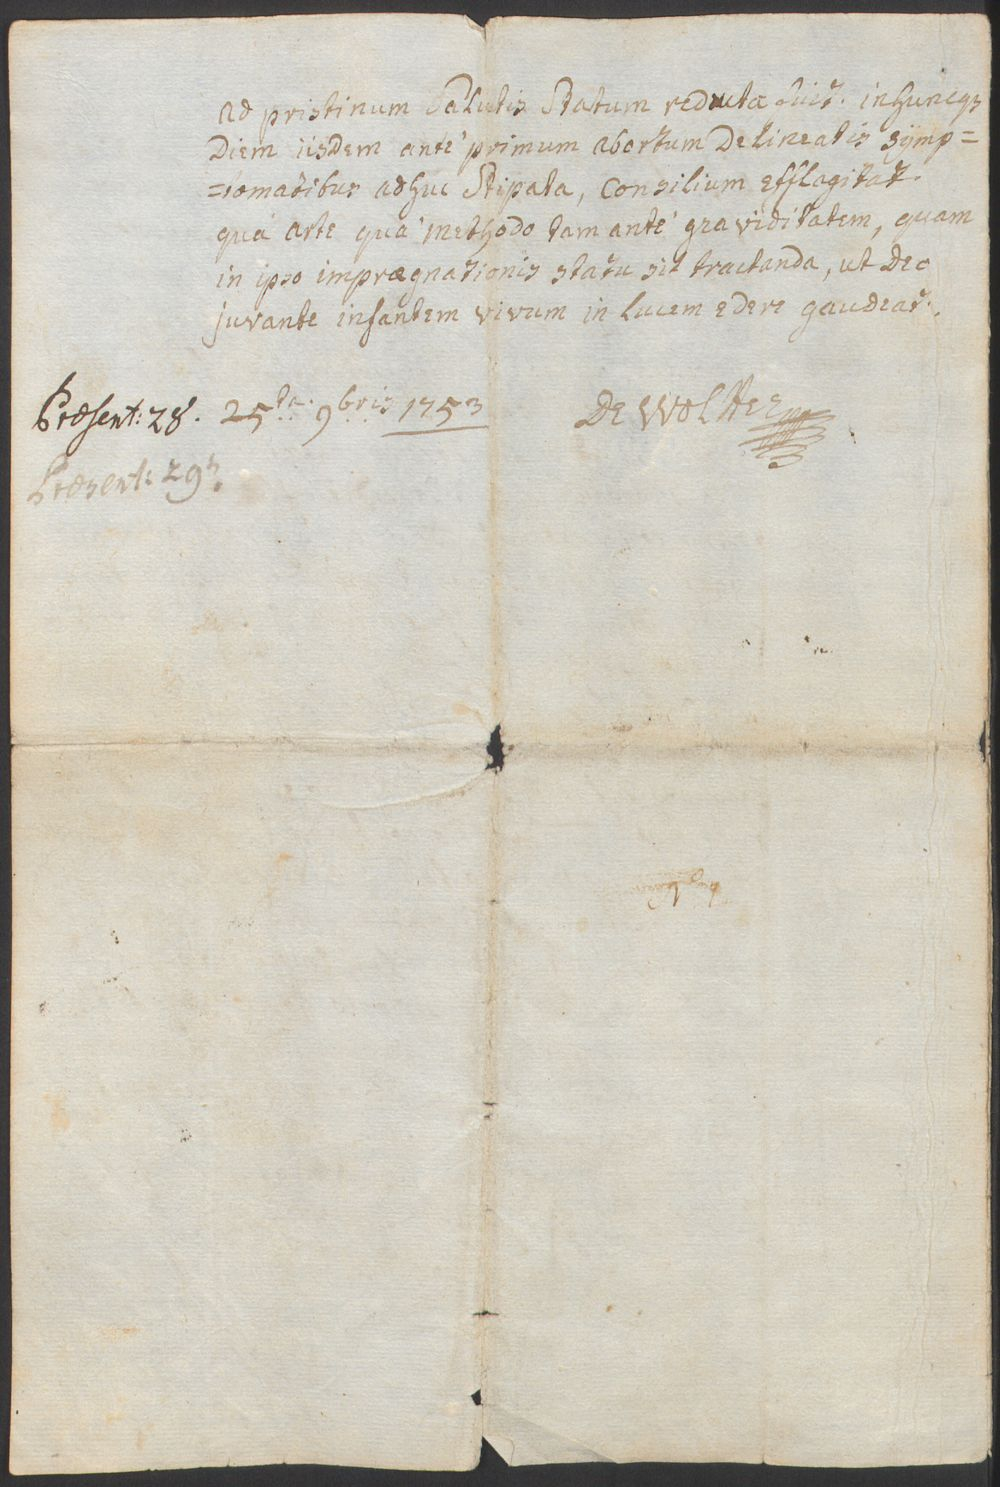 ad pristinum Salutis Statum reducta fuit. in huncq3
Diem iisdem antè primum abortum Delineatis symp=
=tomatibus adhuc Stipata, Consilium efflagitat.
quâ arte quâ methodo tam antè graviditatem, quam
in ipso imprægnationis statu sit tractanda, ut Deo
juvante infantem vivum in Lucem edere gaudeat.
Præsent: 28. 25ta 9bris 1753 De Wolther
Præsent: 29